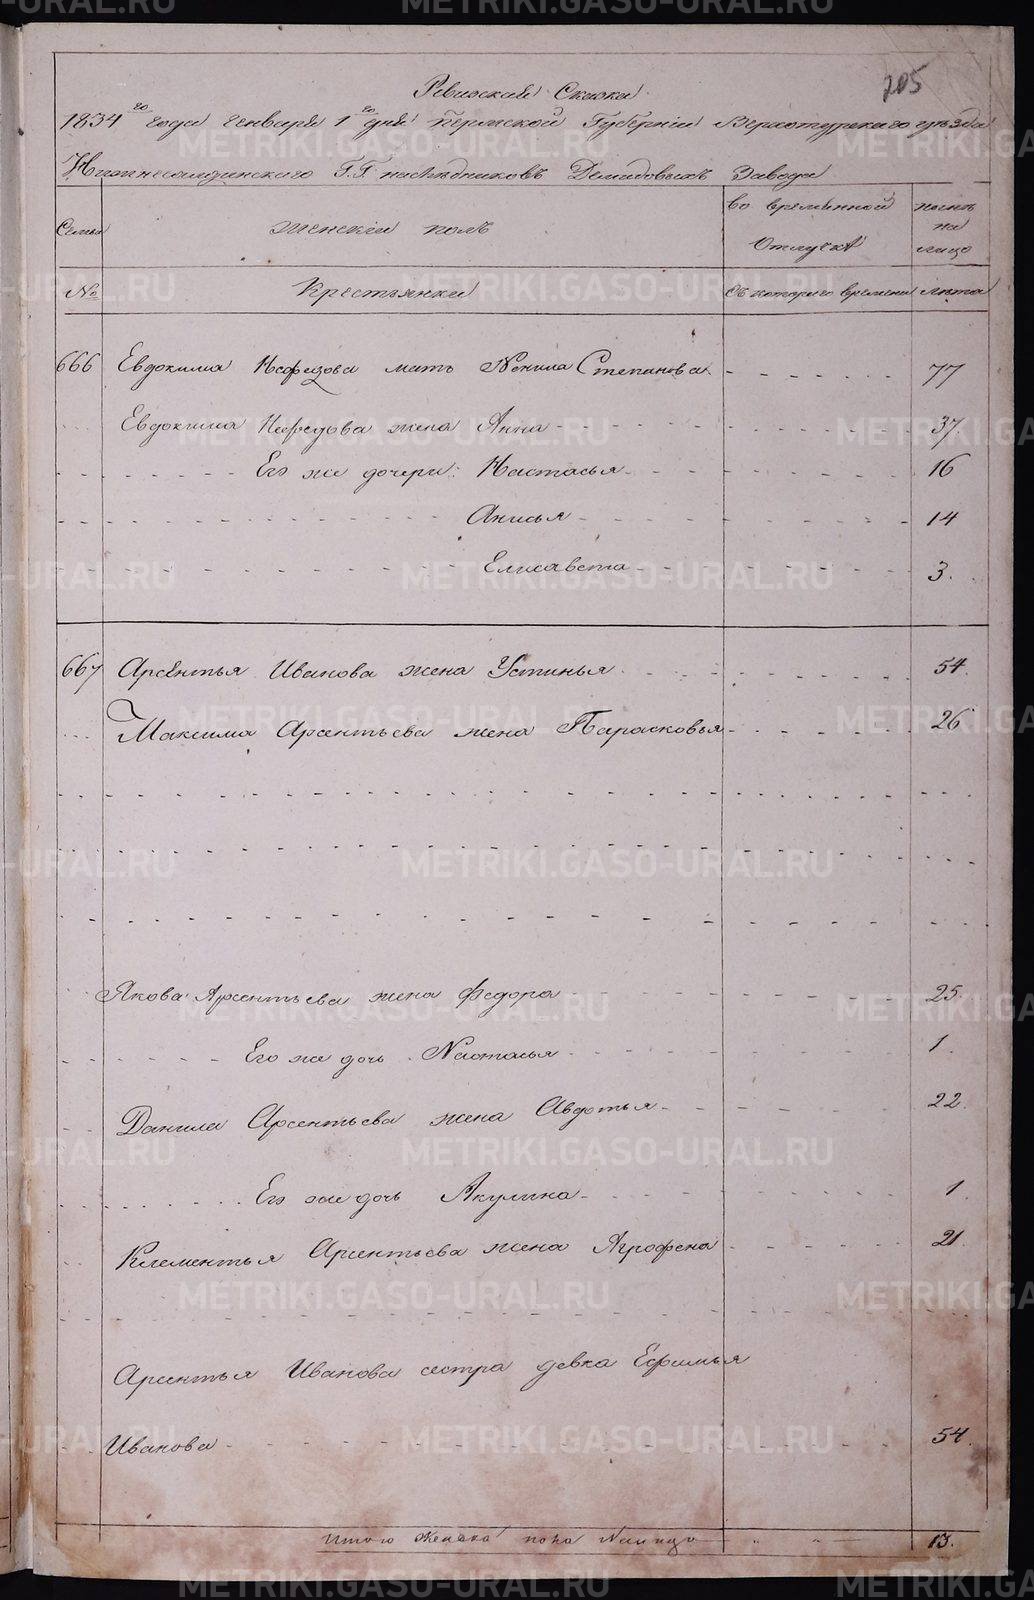 205
Ревизская Сказка
1834го года Генваря 1го дня Пермской Губернии Верхотурского уезда
Нижнесалдинского Г.Г. наследниковъ Демидовыхъ Завода
Семьи Женский полъ Во временной отлучке Ныне на лицо
№ Крестьянки Съ которого времени лета
666 Евдокима Нефедова мать Ненила Степанова 77
Евдокима Нефедова жена Анна 37
Его же дочери: Настасья 16
Анисья 14
Елисавета 3.
667 Арсентья Иванова жена Устинья 54.
Максима Арсентьева жена Парасковья 26
Якова Арсентьева жена Федора 25
Его же дочь Настасья 1.
Данила Арсентьева жена Авдотья 22.
Его же дочь Акулина 1.
Клементья Арсентьева жена Агрофена 21.
Арсентья Иванова сестра девка Ефимья
Иванова 54.
Итого женска пола налицо " " 13.
METRIKI.GASO-URAL.RU